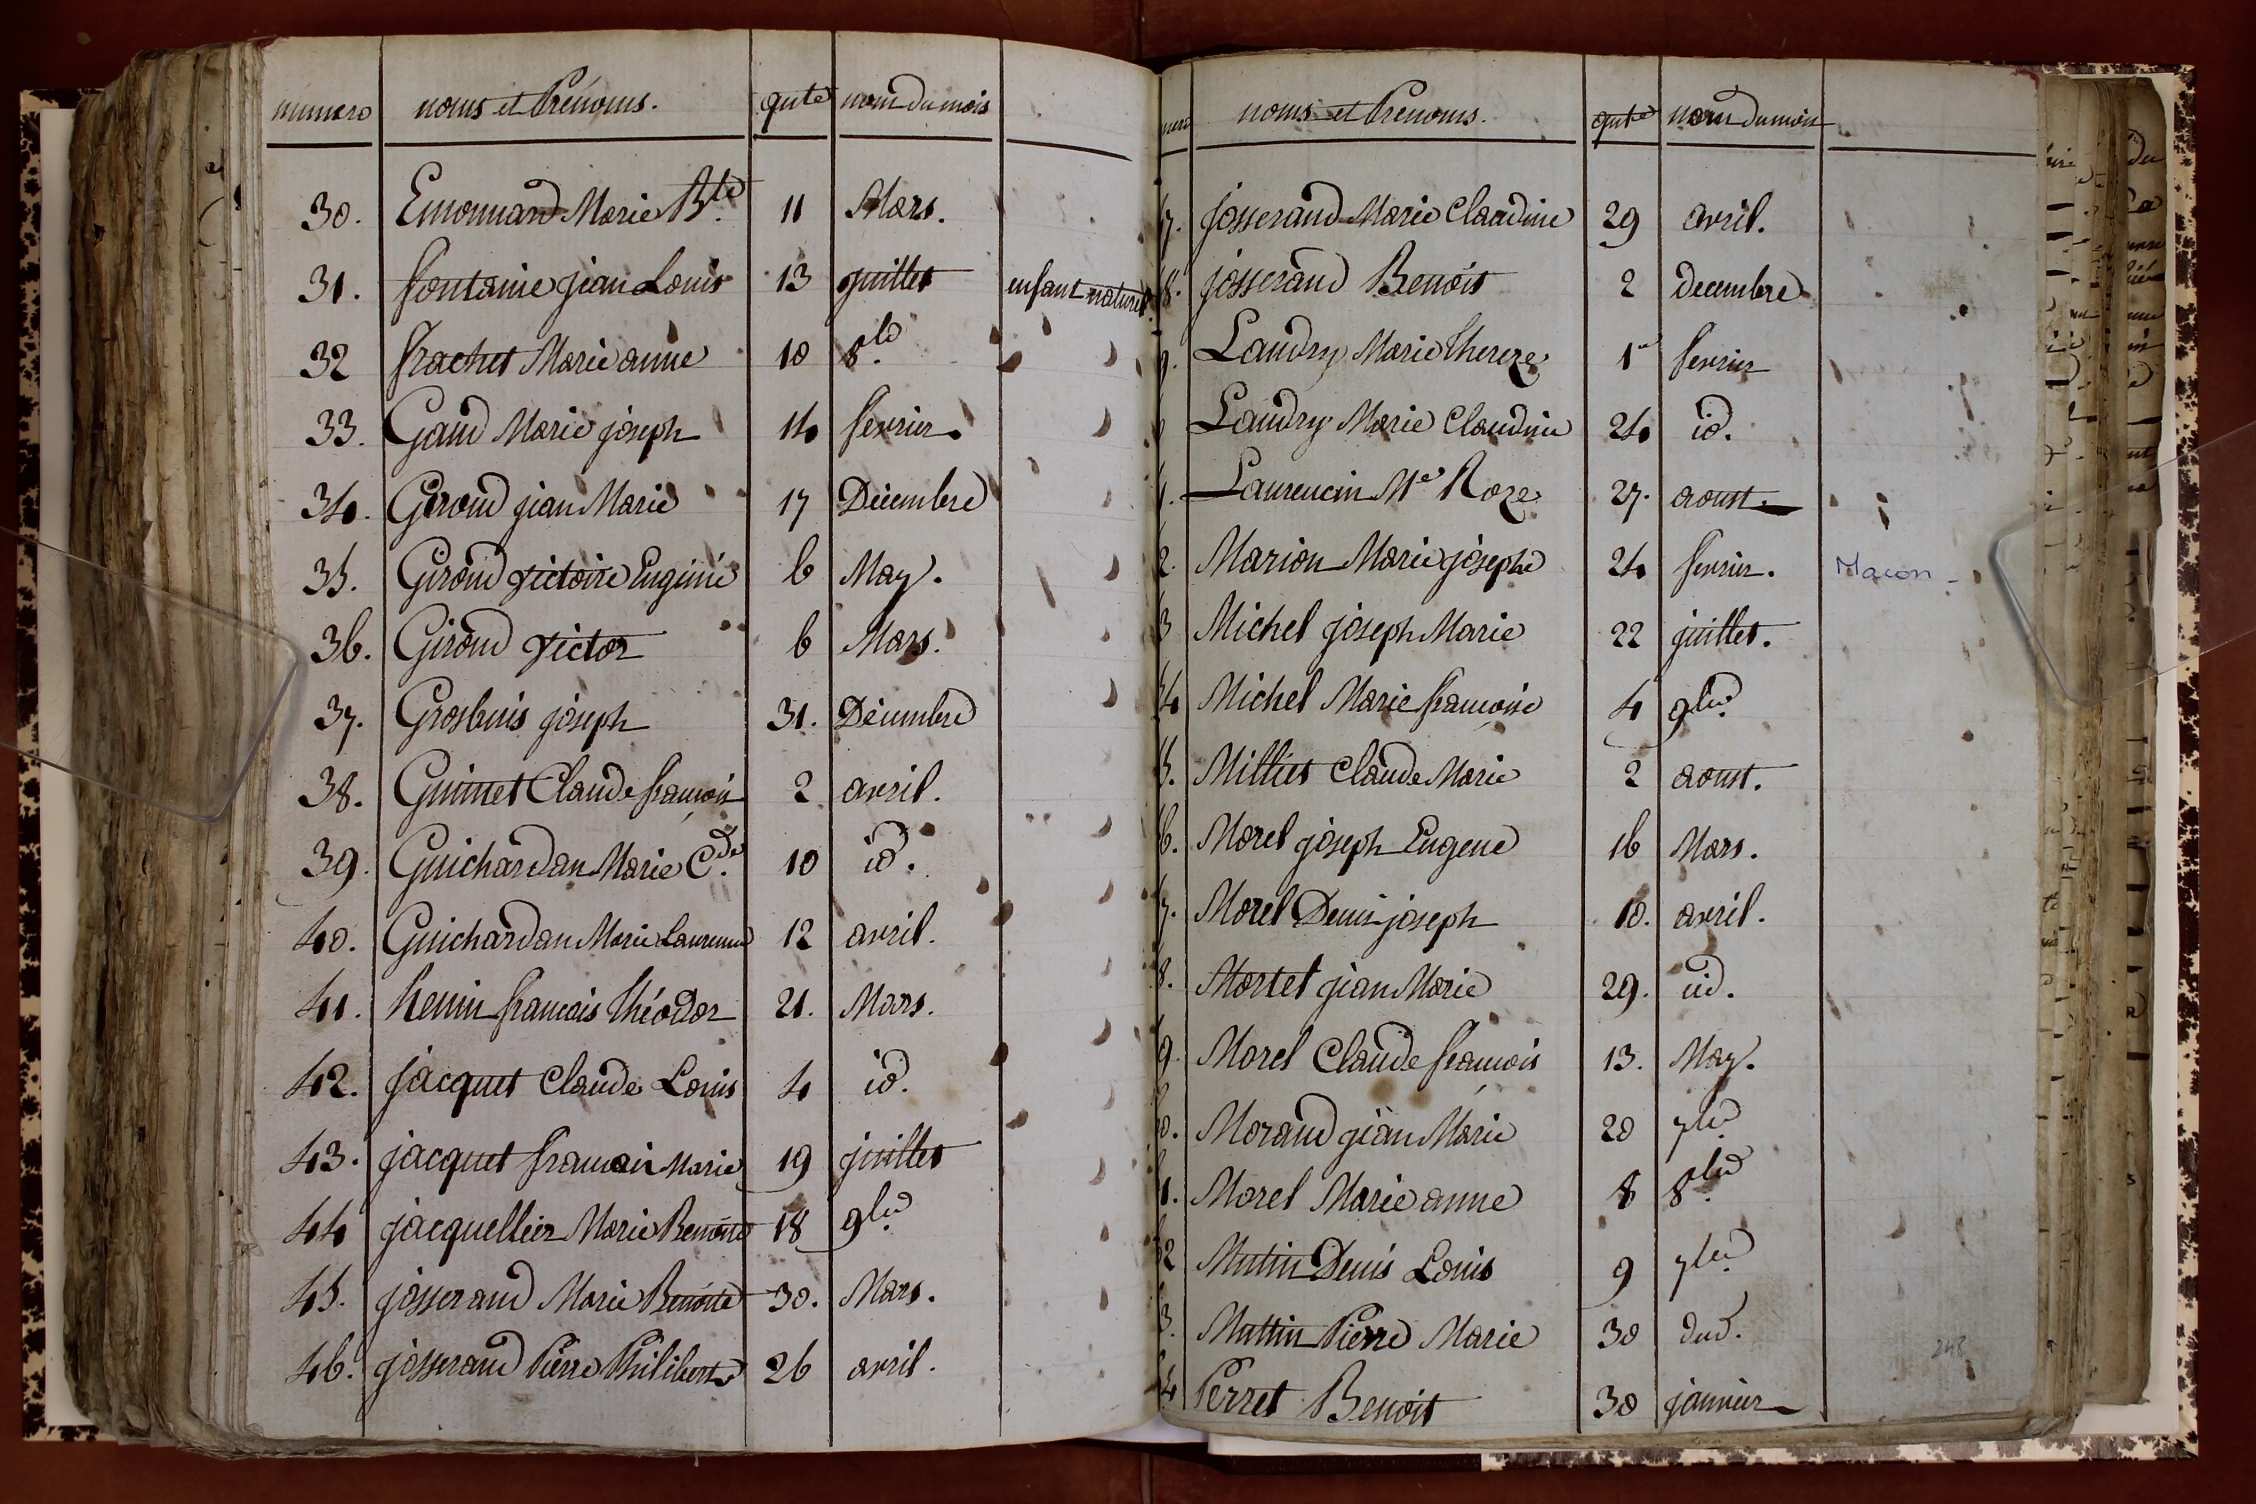 numero noms et Prénoms. qnte nom du mois
30. Emonnard Marie Bte. 11 Mars.
31. fontaine jean Louis 13 juillet enfant naturel
32 frachet Marie anne 10 8be.
33. Gaud Marie joseph 14 fevrier.
34. Giroud jean Marie 17 Décembre
35. Giroud victoire Eugénie 6 May.
36. Giroud victor 6 Mars.
37. Grosbuis joseph 31. Décembre
38. Guinet Claude francois 2 avril.
39. Guichardan Marie Cde. 10 id.
40. Guichardan Marie Laurence 12 avril.
41. henin francois Théodor 21. Mars.
42. jacquet Claude Louis 4 id.
43. jacquet francois Marie 19 juillet
44 jacquellier Marie Benoite 18 9bre
45. josserand Marie Benoite 30. Mars.
46. josserand Pierre Philibert 26 avril.
mero noms et Prenoms. qnte nom du mois
7. josserand Marie Claudine 29 avril.
8. josserand Benoit 2 decembre
9. Landry Marie Thereze 1er fevrier
Landry Marie Claudine 24 id.
1. Laurencin Me Roze 27. aoust.
2. Marion Marie josephe 24 fevrier. Macon -
3 Michel joseph Marie 22 juillet.
4 Michel Marie francoise 4 9bre
5. Milliet Claude Marie 2 aoust.
6. Morel joseph Eugene 16 Mars.
7. Morel Denis joseph 10. avril.
8. Mortel jean Marie 29. id.
9. Morel Claude francois 13. May.
0. Morand jean Marie 20 7bre
1. Morel Marie anne 8 8bre
2 Mutin Denis Louis 9 7bre
3. Muttin Pierre Marie 30 dud.
4 Perret Benoit 30 janvier
248